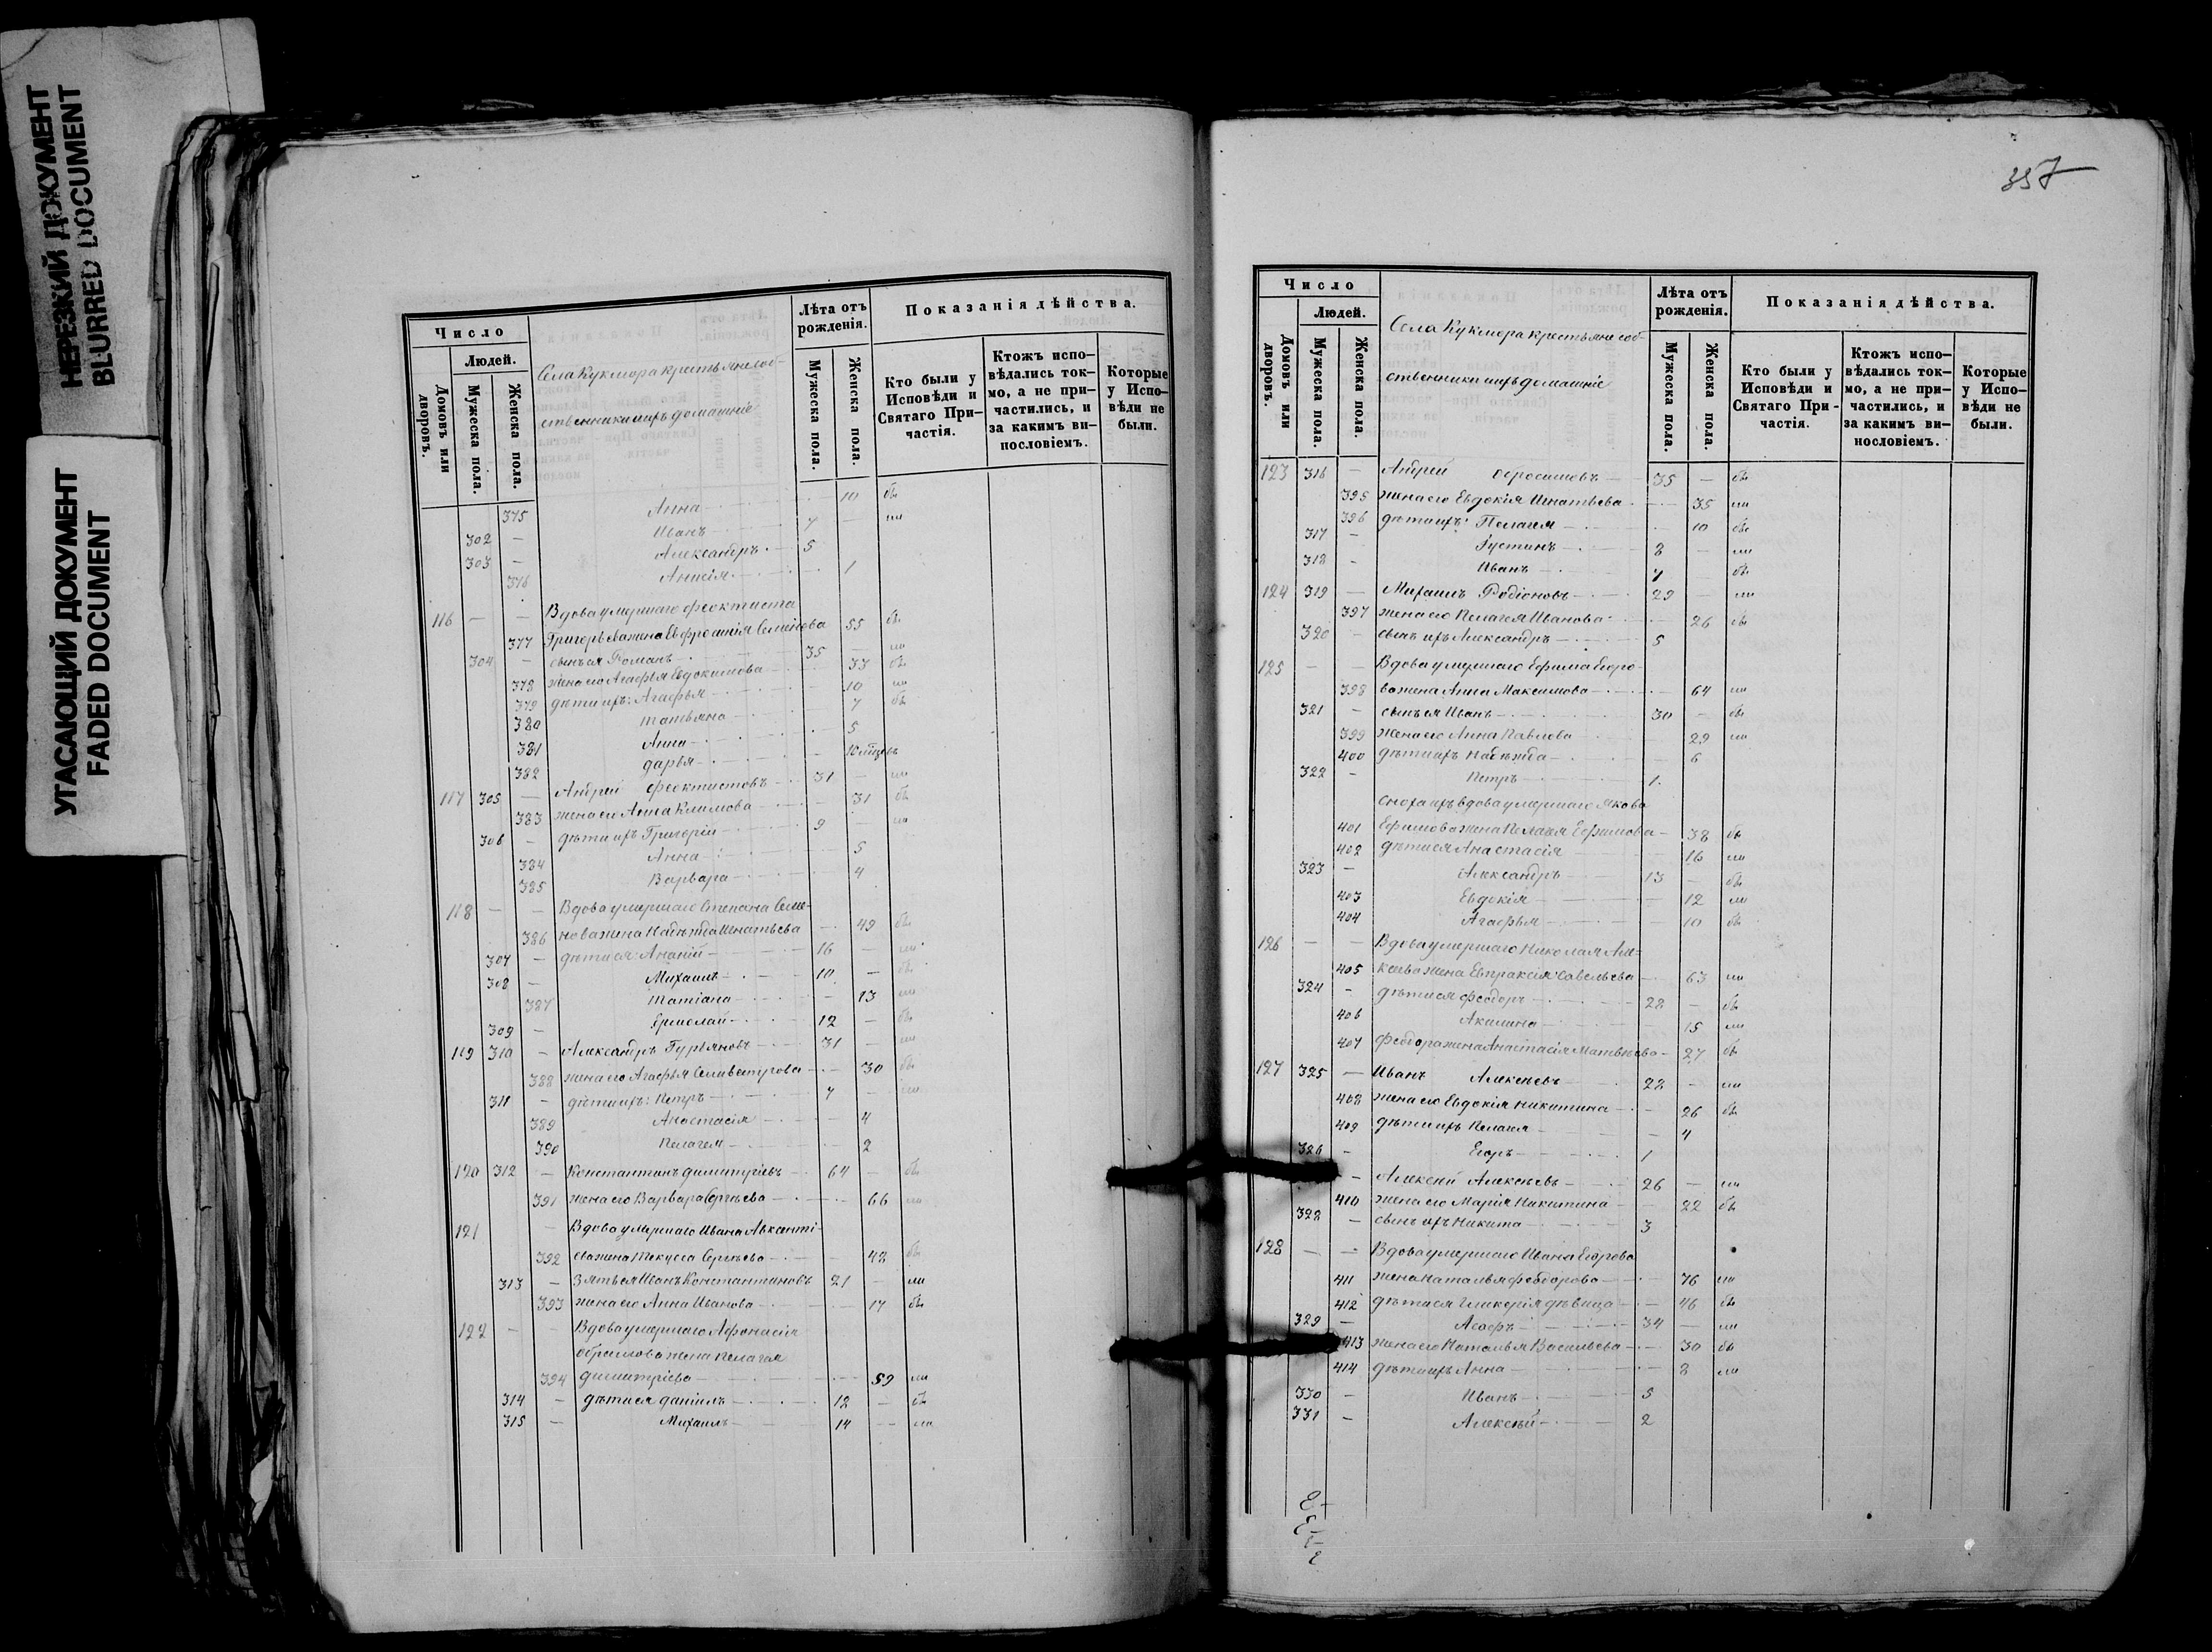 НЕРЕЗКИЙ ДОКУМЕНТ
BLURRED DOCUMENT
УГАСАЮЩИЙ ДОКУМЕНТ
FADED DOCUMENT
Число
Людей.
Домовъ или дворовъ.
Мужеска пола.
Женска пола.
Села Кукмора крестьяне соб-
ственники и ихъ домашніе
Лѣта отъ рожденія.
Мужеска пола.
Женска пола.
Показанія дѣйства.
Кто были у Исповѣди и Святаго При-частія.
Ктожъ испо-вѣдались ток-мо, а не при-частились, и за какимъ ви-нословіемъ.
Которые у Испо-вѣди не были.
375 Анна 10 бы
302 — Иванъ 7 — ли
303 — Александръ 5
376 Анисія 1
116 — — Вдова умершаго Феоктиста
377 Григорьева жена Евфросинія Семенова 55 бы
304 — сынъ ея Романъ 35 — ли
378 жена его Агафья Евдокимова 33 бы
379 дѣти ихъ: Агафья 10 ли
380 Татьяна 7 бы
381 Анна 5
382 Дарья 10 мѣсяцъ
117 305 — Андрей Феоктистовъ 31 — ли
383 жена его Анна Климова 31 бы
306 — дѣти ихъ Григорій 9 — ли
384 Анна 5
385 Варвара 4
118 — — Вдова умершаго Степана Семе-
386 нова жена Надежда Игнатьева 49 бы
307 — дѣти ея: Ананій 16 — ли
308 — Михаилъ 10 — бы
387 Татіана — 13 ли
309 — Ермолай 12 — бы
119 310 — Александръ Гурьяновъ 31 — ли
388 жена его Агафья Селиверстрова 30 бы
311 — дѣти ихъ: Петръ 7 — ли
389 Анастасія 4
390 Пелагея 2
120 312 — Константинъ Димитріевъ 64 — бы
391 жена его Варвара Сергѣева 66 ли
121 — Вдова умершаго Ивана Авксенті-
392 ева жена Текуса Сергѣева 48 бы
313 — Зять ея Иванъ Константиновъ 21 — ли
393 жена его Анна Иванова 17 бы
122 — — Вдова умершаго Афонасія
жена Пелагея
394 Димитріева 59 ли
314 — дѣти ея Даніилъ 12 — бы
315 — Михаилъ 14 — ли
357
Число
Людей.
Домовъ или дворовъ.
Мужеска пола.
Женска пола.
Села Кукмора крестьяне соб-
ственники и ихъ домашніе
Лѣта отъ рожденія.
Мужеска пола.
Женска пола.
Показанія дѣйства.
Кто были у Исповѣди и Святаго При-частія.
Ктожъ испо-вѣдались ток-мо, а не при-частились, и за какимъ ви-нословіемъ.
Которые у Испо-вѣди не были.
123 316 — Андрей 35 — бы
395 жена его Евдокія Игнатьева 35 ли
396 дѣти ихъ: Пелагея 10 бы
317 — Густинъ 8 — ли
318 — Иванъ 7 — бы
124 319 — Михаилъ Родіоновъ 29 — ли
397 жена его Пелагея Иванова 26 бы
320 — сынъ ихъ Александръ 5
125 — — Вдова умершаго Ефима Егоро-
398 ва жена Анна Максимова 64 ли
321 — сынъ ея Иванъ 30 — бы
399 жена его Анна Павлова 29 ли
400 дѣти ихъ Надежда 6
322 — Петръ 1
сноха ихъ вдова умершаго Якова
401 Ефимова жена Пелагея Ефимова 38 бы
402 дѣти ея Анастасія 16 ли
323 — Александръ 13 — бы
403 Евдокія 12 ли
404 Агафья 10 бы
126 — — Вдова умершаго Николая Але-
405 жена Евпраксія Савельева 63 ли
324 — дѣти ея Феодоръ 28 — бы
406 Акилина 15 ли
407 Феодора жена Анастасія Матвѣева 27 бы
127 325 — Иванъ Алексѣевъ 28 — ли
408 жена его Евдокія Никитина 26 бы
409 дѣти ихъ Пелагея 4
326 — Егоръ 1
— Алексѣй Алексѣевъ 26 — ли
410 жена его Марія Никитина 22 бы
328 — сынъ ихъ Никита 3
128 — — Вдова умершаго Ивана Егорова
411 жена Наталья Феодорова 76 ли
412 дѣти ея Гликерія дѣвица 46 бы
329 — 34 — ли
413 жена его Наталья Васильева 30 бы
414 дѣти ихъ Анна 8 ли
330 — Иванъ 5
331 — Алексѣй 2